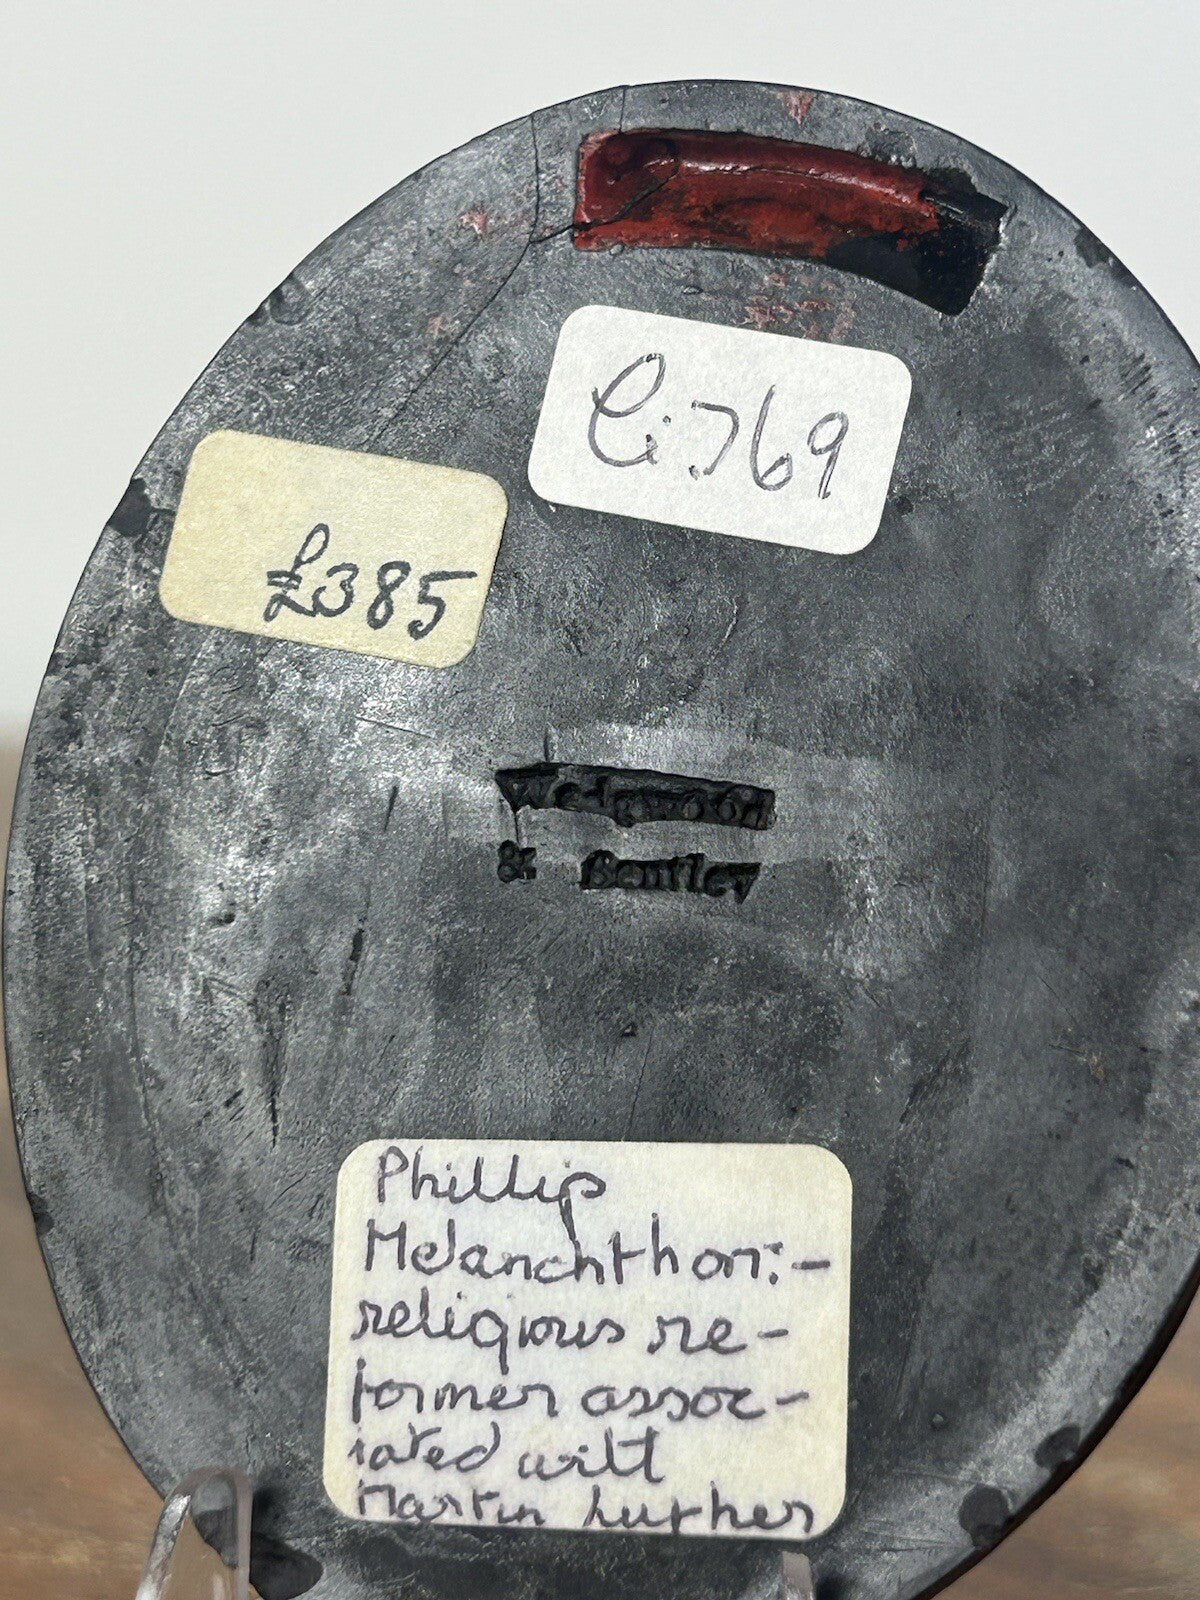 C:769
£385
Wedgwood
& Bentley
Phillip
Melanchthon:-
religious re-
former assoc-
iated with
Martin Luther